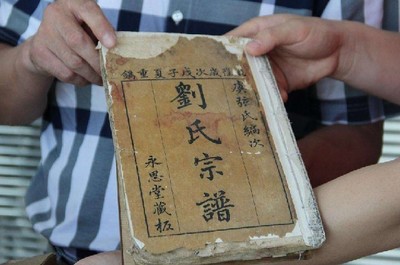 歲次戊子夏重鐫
虞張氏編次
劉氏宗譜
永思堂藏板